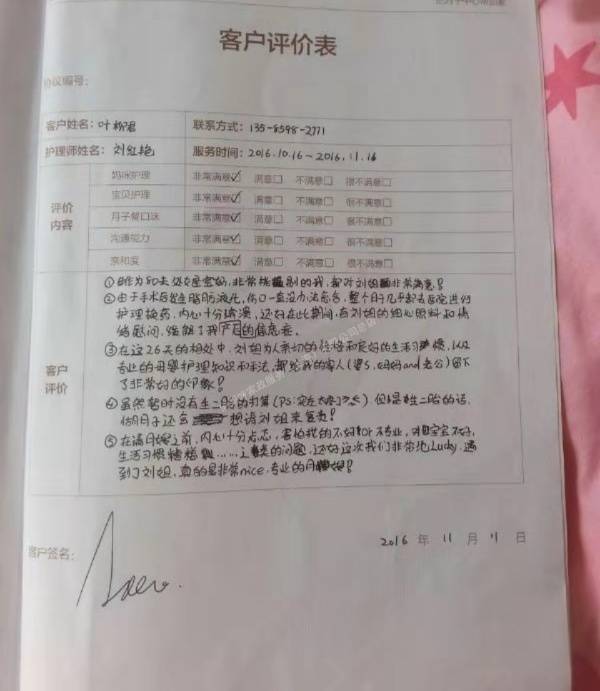 客户评价表
协议编号：
客户姓名：叶柳君 联系方式：135-8598-2771
护理师姓名：刘红艳 服务时间：2016.10.16～2016.11.16
评价内容
妈咪护理 非常满意☑ 满意☐ 不满意☐ 很不满意☐
宝贝护理 非常满意☑ 满意☐ 不满意☐ 很不满意☐
月子餐口味 非常满意☑ 满意☐ 不满意☐ 很不满意☐
沟通能力 非常满意☑ 满意☐ 不满意☐ 很不满意☐
亲和度 非常满意☑ 满意☐ 不满意☐ 很不满意☐
客户评价
①身为80末处女座宝妈，非常挑剔的我，都对刘姐非常满意！
②由于手术后发生脂肪液化，伤口一直没办法愈合，整个月几乎都去医院进行
护理换药，内心十分崩溃，还好在此期间，有刘姐的细心照料和情
绪慰问，缓解了我产后的
③在这26天的相处中，刘姐为人亲切的性格和良好的生活习惯，以及
专业的母婴护理知识和手法，都给我的家人（婆婆，妈妈and老公）留下
了非常好的印象！
④虽然暂时没有生二胎的打算（PS：实在太），但是生二胎的话，
做月子还会想请刘姐来
⑤在请月嫂之前，内心十分忐忑，害怕找的不好or不专业，对宝宝不好，
生活习惯……之类的问题，还好这次我们非常地Lucky，遇
到了刘姐，真的是非常nice，专业的月嫂！
客户签名：
2016 年 11 月 11 日